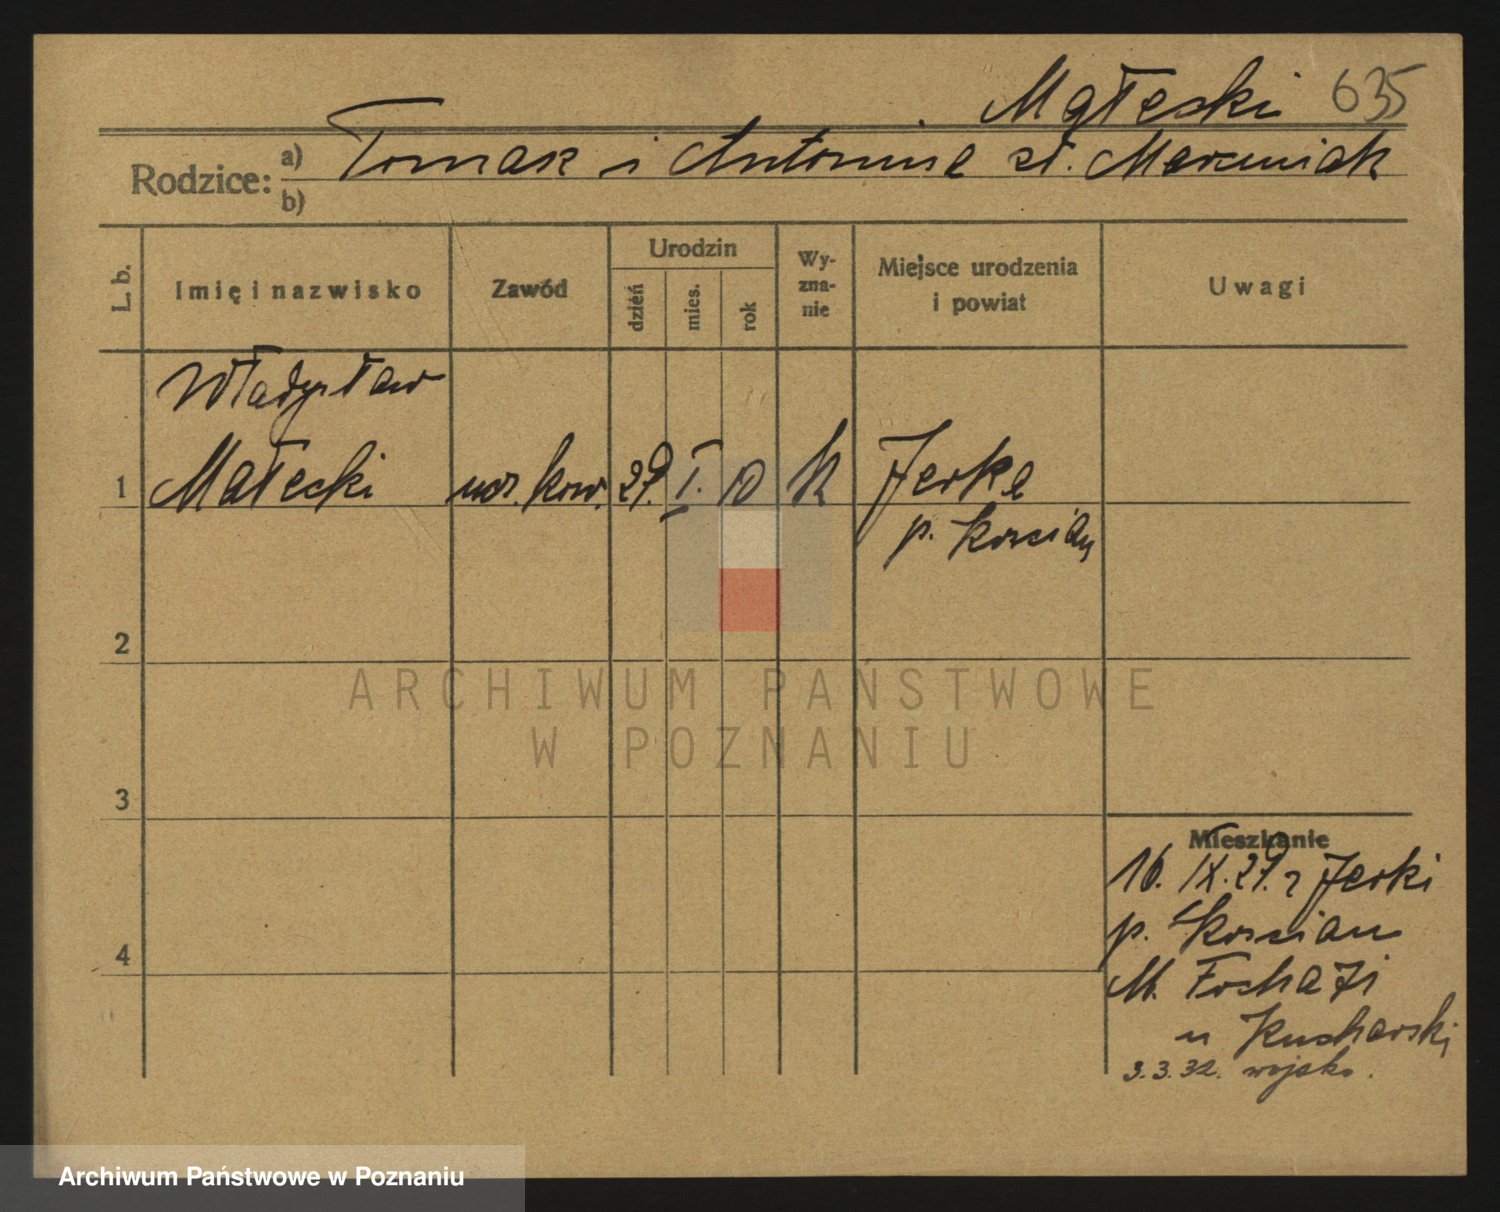 Małecki 635
Rodzice: a) Tomasz i Antonina zd. Marciniak
b)
L. b.
Imię i nazwisko
Zawód
Urodzin
dzień
mies.
rok
Wy-
zna-
nie
Miejsce urodzenia
i powiat
Uwagi
Władysław
1 Małecki ucz. kow. 29. I. 10 K Jerka
p. Kościan
2
3
4
Mieszkanie
16. IX. 29. z Jerki
p. Kościan
M. Focha 71
u Kucharski
3.3.32. wojsko.
ARCHIWUM PAŃSTWOWE
W POZNANIU
Archiwum Państwowe w Poznaniu